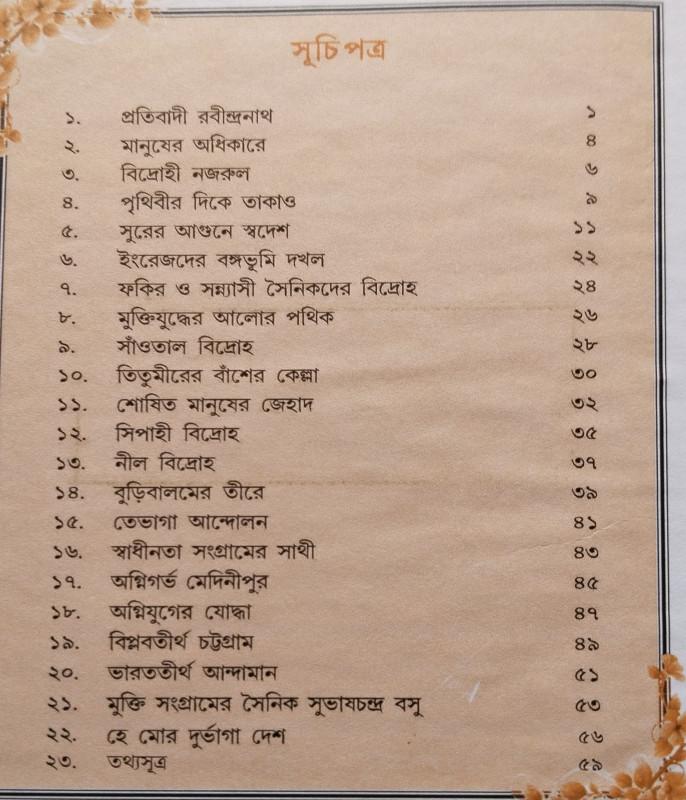 সূচিপত্র
১. প্রতিবাদী রবীন্দ্রনাথ ১
২. মানুষের অধিকারে ৪
৩. বিদ্রোহী নজরুল ৬
৪. পৃথিবীর দিকে তাকাও ৯
৫. সুরের আগুনে স্বদেশ ১১
৬. ইংরেজদের বঙ্গভূমি দখল ২২
৭. ফকির ও সন্ন্যাসী সৈনিকদের বিদ্রোহ ২৪
৮. মুক্তিযুদ্ধের আলোর পথিক ২৬
৯. সাঁওতাল বিদ্রোহ ২৮
১০. তিতুমীরের বাঁশের কেল্লা ৩০
১১. শোষিত মানুষের জেহাদ ৩২
১২. সিপাহী বিদ্রোহ ৩৫
১৩. নীল বিদ্রোহ ৩৭
১৪. বুড়িবালামের তীরে ৩৯
১৫. তেভাগা আন্দোলন ৪১
১৬. স্বাধীনতা সংগ্রামের সাথী ৪৩
১৭. অগ্নিগর্ভ মেদিনীপুর ৪৫
১৮. অগ্নিযুগের যোদ্ধা ৪৭
১৯. বিপ্লবতীর্থ চট্টগ্রাম ৪৯
২০. ভারততীর্থ আন্দামান ৫১
২১. মুক্তি সংগ্রামের সৈনিক সুভাষচন্দ্র বসু ৫৩
২২. হে মোর দুর্ভাগা দেশ ৫৬
২৩. তথ্যসূত্র ৫৯